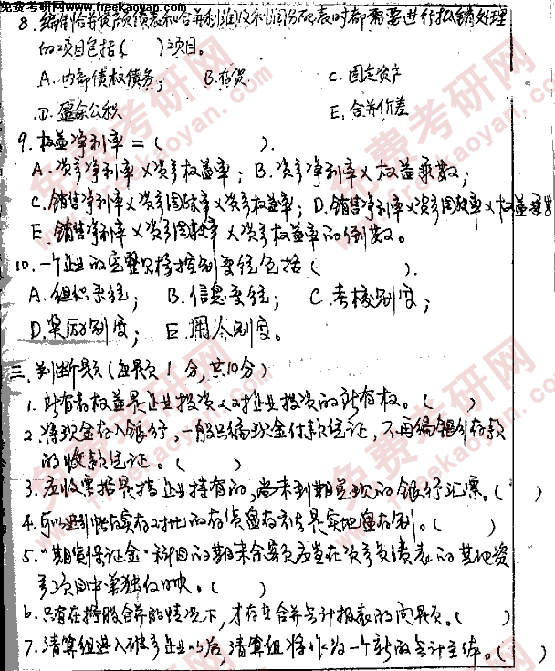 免费考研网www.freekaoyan.com
8. 编制合并资产负债表和合并利润表和利润分配表时都需要进行抵销处理
的项目包括( )项目。
A. 内部债权债务; B. 存货 C. 固定资产
D. 盈余公积 E. 合并价差
9. 权益净利率 = ( ).
A. 资产净利率×资产权益率; B. 资产净利率×权益乘数;
C. 销售净利率×资产周转率×资产权益率; D. 销售净利率×资产周转率×权益乘数
E. 销售净利率×资产周转率×资产权益率的倒数。
10. 一个企业的完整 控制系统包括( ).
A. 组织系统; B. 信息系统; C. 考核制度;
D. 奖励制度; E. 用人制度。
三. 判断题(每题1分,共10分)
1. 所有者权益是企业投资人对企业投资的所有权。( )
2. 将现金存入银行,一般只编现金付款凭证,不再编银行存款
的收款凭证。( )
3. 应收票据是指企业持有的,尚未到期兑现的银行汇票。( )
4. 的存货盘存方法是实地盘存制。( )
5. "期货保证金"科目的期末余额应当在资产负债表的其他资
产项目中单独反映。( )
6. 只有在控股合并的情况下,才存在合并会计报表的问题。( )
7. 清算组进入破产企业以后,清算组将作为一个新的会计主体。( )
免费考研网
www.freekaoyan.com